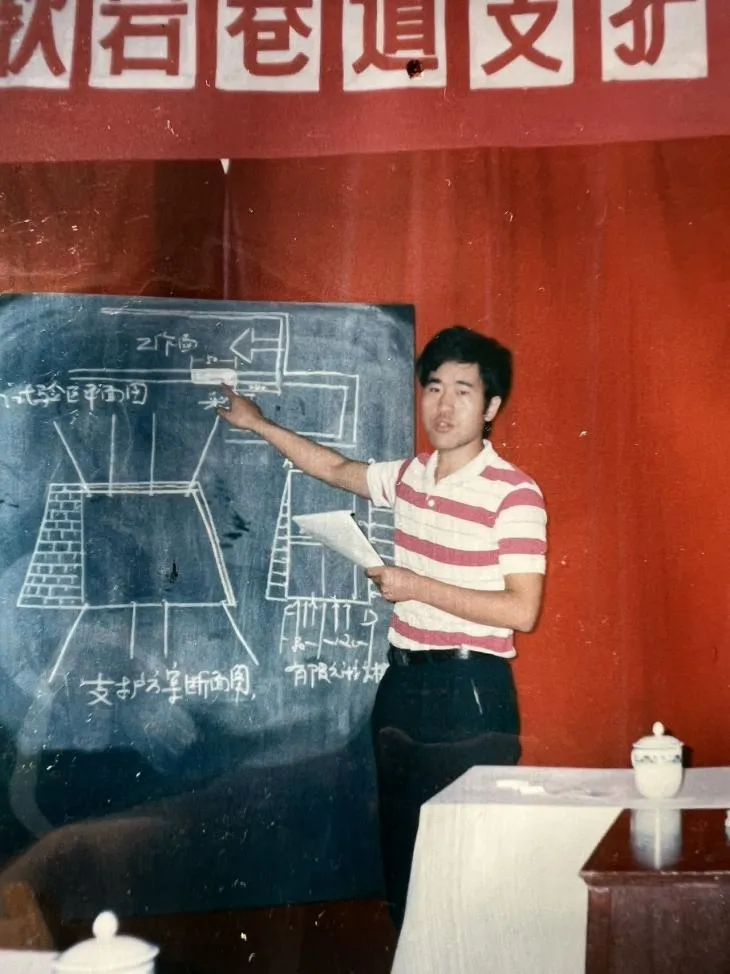 软岩巷道支护
工作面
50
试验区平面图
采
支护方案断面图
有限